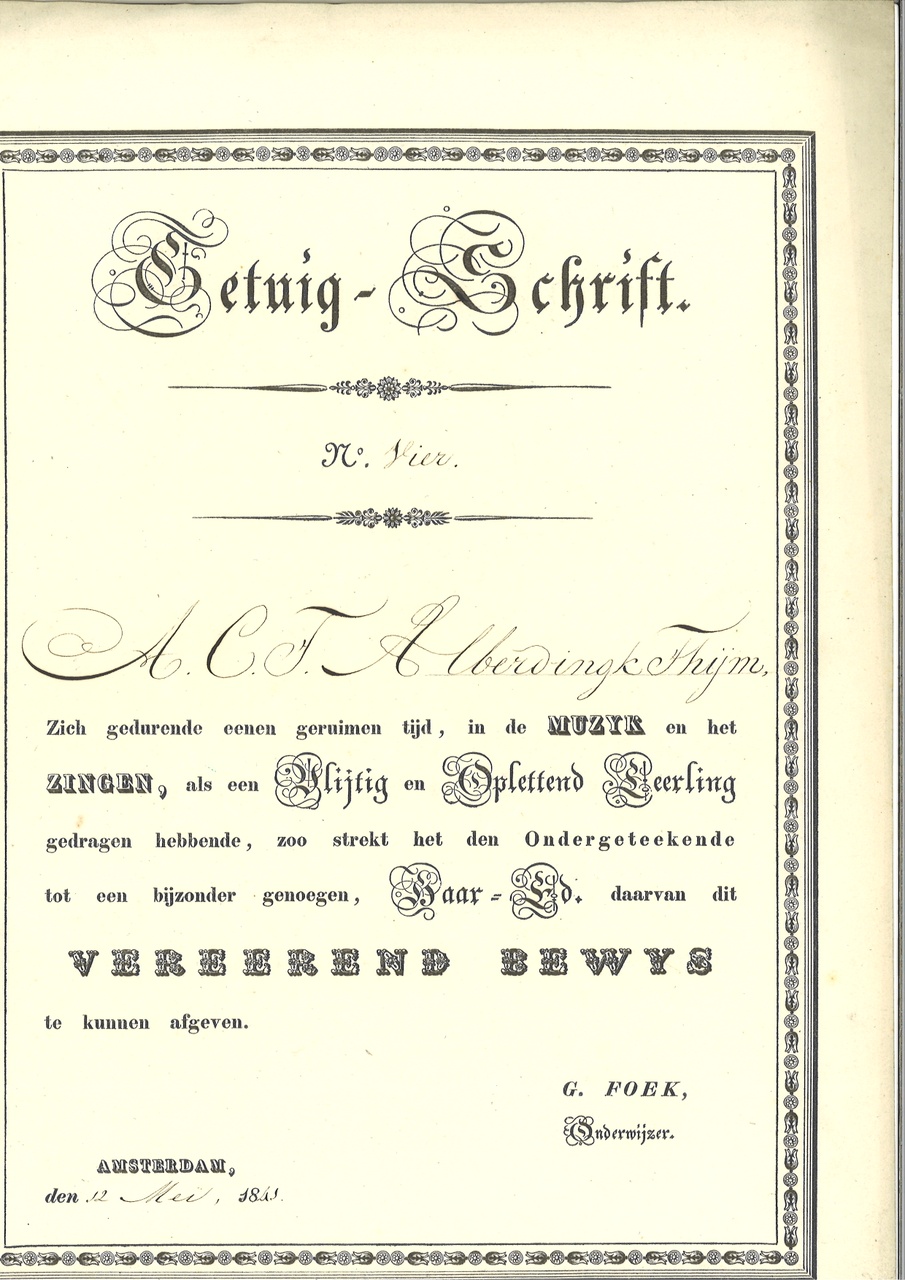 Getuig-Schrift.
No. Vier.
A. C. T. Alberdingk Thijm,
Zich gedurende eenen geruimen tijd, in de MUZYK en het
ZINGEN, als een Vlijtig en Oplettend Leerling
gedragen hebbende, zoo strekt het den Ondergeteekende
tot een bijzonder genoegen, Haar-Ed. daarvan dit
VEREEREND BEWYS
te kunnen afgeven.
G. FOEK,
Onderwijzer.
AMSTERDAM,
den 12 Mei, 1841.